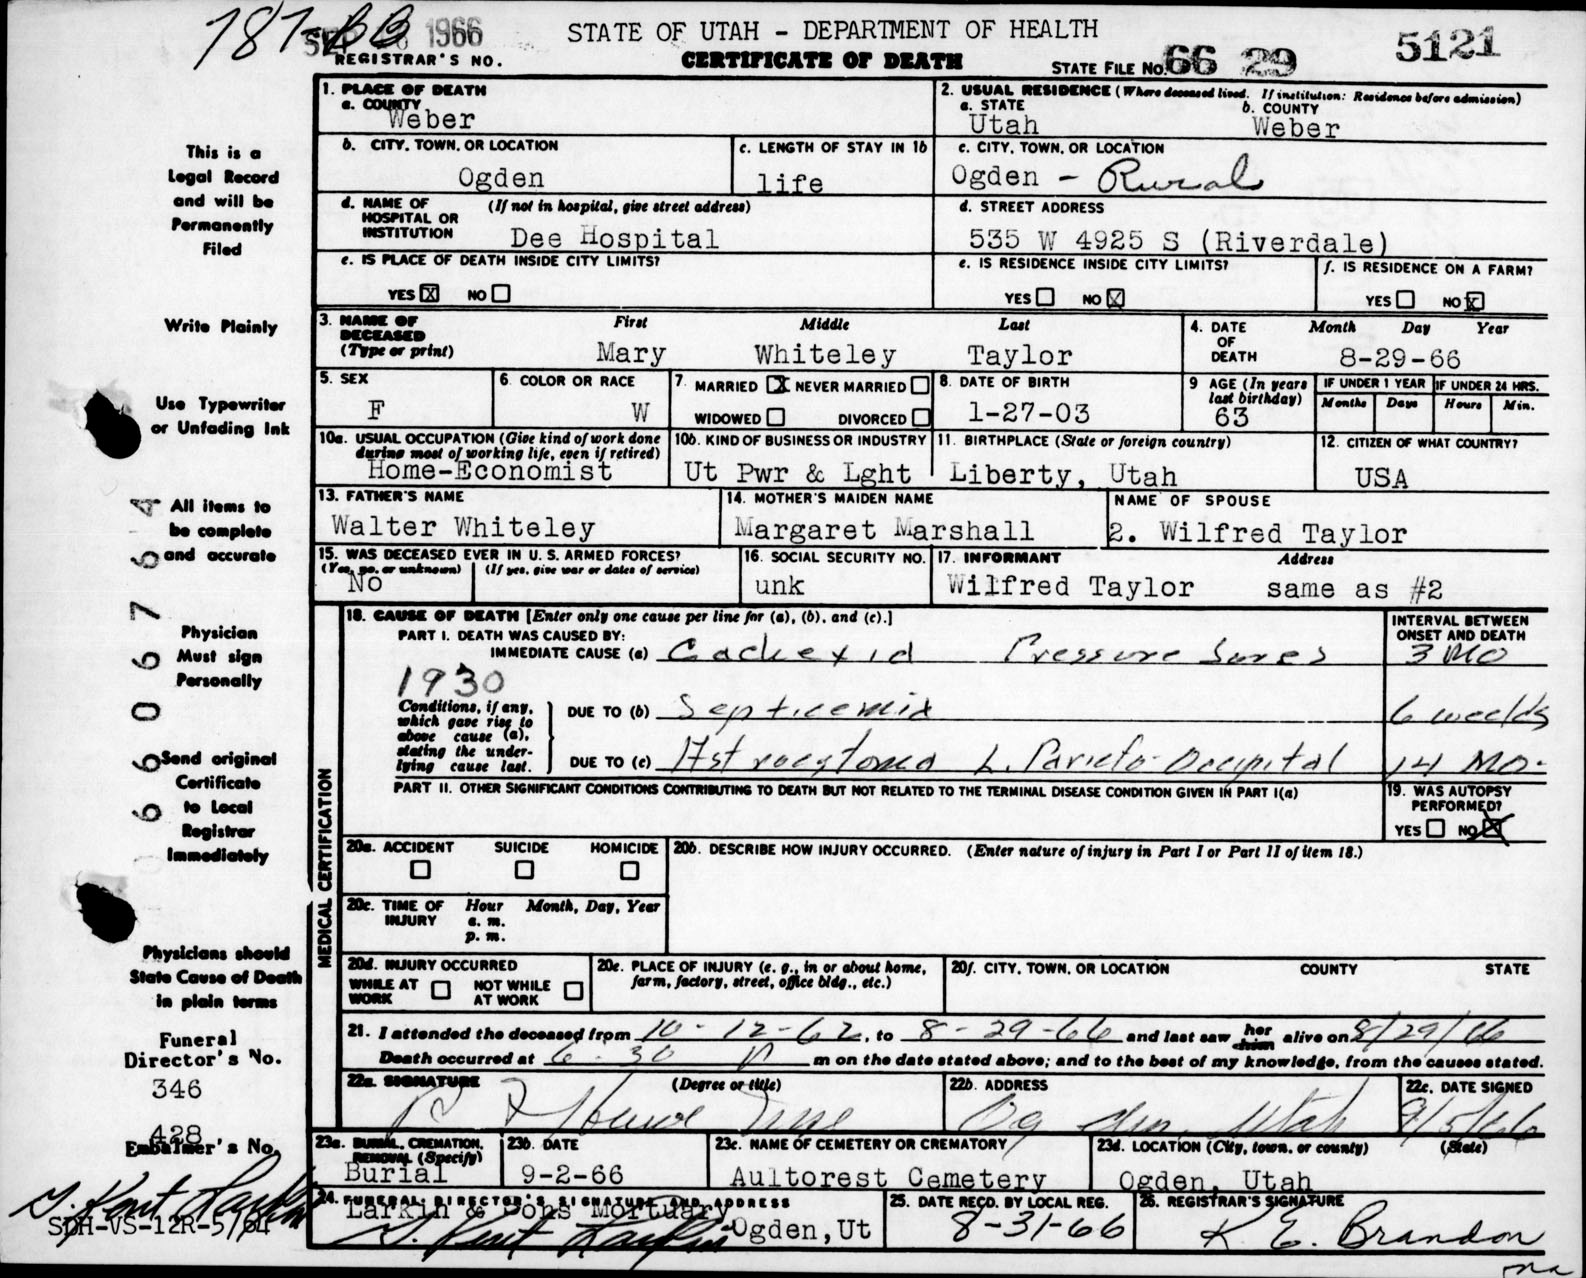 787-BB SEP 6 1966 STATE OF UTAH - DEPARTMENT OF HEALTH 5121
REGISTRAR'S NO. CERTIFICATE OF DEATH STATE FILE NO. 66 29
1. PLACE OF DEATH
a. COUNTY
Weber
2. USUAL RESIDENCE (Where deceased lived. If institution: Residence before admission)
a. STATE b. COUNTY
Utah Weber
b. CITY, TOWN, OR LOCATION
Ogden
c. LENGTH OF STAY IN 1b
life
c. CITY, TOWN, OR LOCATION
Ogden - Rural
d. NAME OF HOSPITAL OR INSTITUTION (If not in hospital, give street address)
Dee Hospital
d. STREET ADDRESS
535 W 4925 S (Riverdale)
e. IS PLACE OF DEATH INSIDE CITY LIMITS?
YES X NO
e. IS RESIDENCE INSIDE CITY LIMITS?
YES NO X
f. IS RESIDENCE ON A FARM?
YES NO X
3. NAME OF DECEASED (Type or print) First Middle Last
Mary Whiteley Taylor
4. DATE OF DEATH Month Day Year
8-29-66
5. SEX
F
6. COLOR OR RACE
W
7. MARRIED X NEVER MARRIED
WIDOWED DIVORCED
8. DATE OF BIRTH
1-27-03
9 AGE (In years last birthday)
63
IF UNDER 1 YEAR IF UNDER 24 HRS.
Months Days Hours Min.
10a. USUAL OCCUPATION (Give kind of work done during most of working life, even if retired)
Home-Economist
10b. KIND OF BUSINESS OR INDUSTRY
Ut Pwr & Lght
11. BIRTHPLACE (State or foreign country)
Liberty, Utah
12. CITIZEN OF WHAT COUNTRY?
USA
13. FATHER'S NAME
Walter Whiteley
14. MOTHER'S MAIDEN NAME
Margaret Marshall
NAME OF SPOUSE
2. Wilfred Taylor
15. WAS DECEASED EVER IN U. S. ARMED FORCES?
(Yes, no. or unknown) (If yes, give war or dates of service)
No
16. SOCIAL SECURITY NO.
unk
17. INFORMANT Address
Wilfred Taylor same as #2
MEDICAL CERTIFICATION
18. CAUSE OF DEATH [Enter only one cause per line for (a), (b), and (c).]
INTERVAL BETWEEN ONSET AND DEATH
PART I. DEATH WAS CAUSED BY:
IMMEDIATE CAUSE (a) Cachexia Pressure Sores 3 MO
1930
Conditions, if any, which gave rise to above cause (a), stating the underlying cause last.
DUE TO (b) Septicemia 6 weeks
DUE TO (c) Astrocytoma L. Parieto-Occipital 14 MO.
PART II. OTHER SIGNIFICANT CONDITIONS CONTRIBUTING TO DEATH BUT NOT RELATED TO THE TERMINAL DISEASE CONDITION GIVEN IN PART I(a)
19. WAS AUTOPSY PERFORMED?
YES NO X
20a. ACCIDENT SUICIDE HOMICIDE
20b. DESCRIBE HOW INJURY OCCURRED. (Enter nature of injury in Part I or Part II of item 18.)
20c. TIME OF INJURY Hour Month, Day, Year
a. m.
p. m.
20d. INJURY OCCURRED
WHILE AT WORK NOT WHILE AT WORK
20e. PLACE OF INJURY (e. g., in or about home, farm, factory, street, office bldg., etc.)
20f. CITY, TOWN, OR LOCATION COUNTY STATE
21. I attended the deceased from 10-12-62, to 8-29-66 and last saw her him alive on 8/29/66
Death occurred at 6:30 P m on the date stated above; and to the best of my knowledge, from the causes stated.
22a. SIGNATURE (Degree or title)
22b. ADDRESS
Ogden, Utah
22c. DATE SIGNED
9/5/66
23a. BURIAL, CREMATION, REMOVAL (Specify)
Burial
23b. DATE
9-2-66
23c. NAME OF CEMETERY OR CREMATORY
Aultorest Cemetery
23d. LOCATION (City, town, or county) (State)
Ogden, Utah
24. FUNERAL DIRECTOR'S SIGNATURE AND ADDRESS
Larkin & Sons Mortuary Ogden, Ut
G. Kent Larkin
25. DATE RECD. BY LOCAL REG.
8-31-66
26. REGISTRAR'S SIGNATURE
K. E. Brandon
This is a
Legal Record
and will be
Permanently
Filed
Write Plainly
Use Typewriter
or Unfading Ink
All items to
be complete
and accurate
Physician
Must sign
Personally
Send original
Certificate
to Local
Registrar
Immediately
Physicians should
State Cause of Death
in plain terms
Funeral
Director's No.
346
428
Embalmer's No.
G. Kent Larkin
SDH-VS-12R-5/64
6 6 0 6 7 6 4